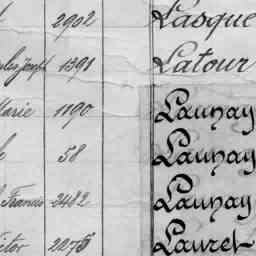 2902 Lasque
1391 Latour
Marie 1190 Launay
58 Launay
Francis 2482 Launay
2075 Lauret